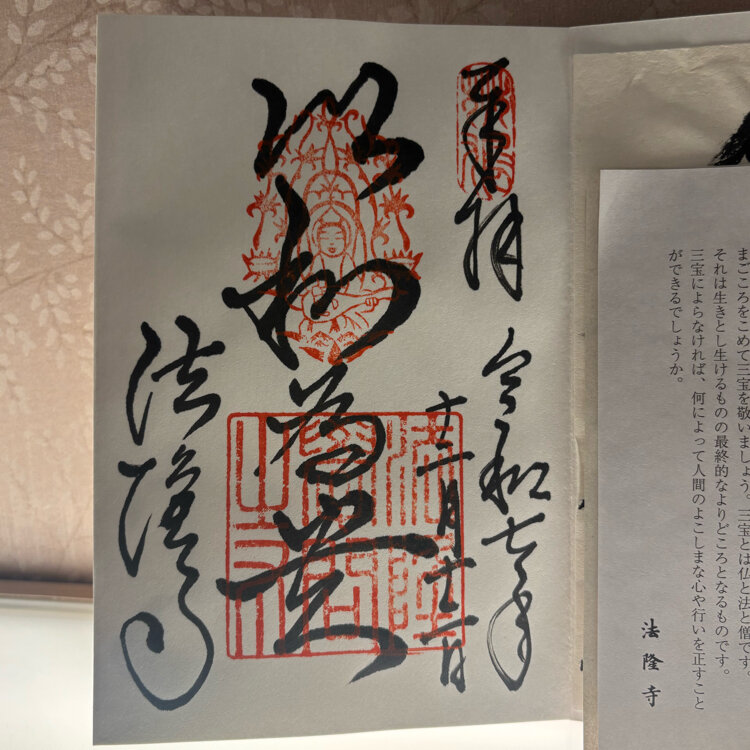 奉拝
令和七年
十二月
以和為貴
法隆寺
まごころをこめて三宝を敬いましょう。三宝とは仏と法と僧です。
それは生きとし生けるものの最終的なよりどころとなるものです。
三宝によらなければ、何によって人間のよこしまな心や行いを正すこと
ができるでしょうか。
法隆寺